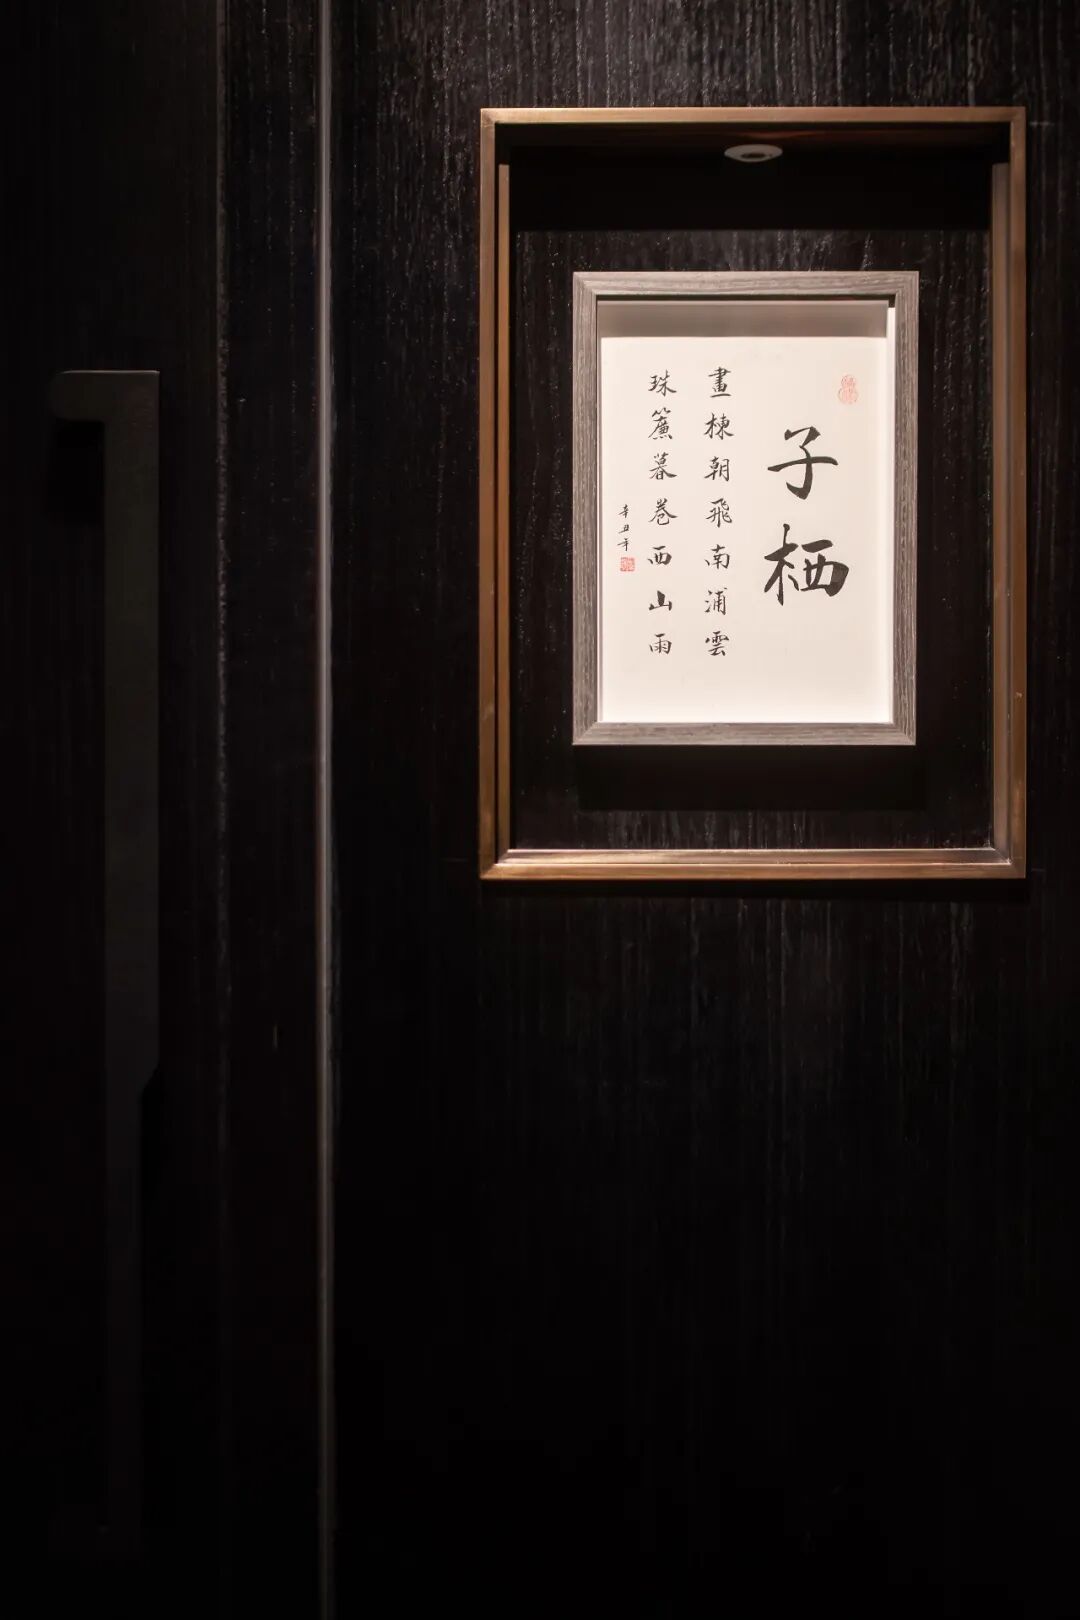 子栖
畫棟朝飛南浦雲
珠簾暮卷西山雨
辛丑年